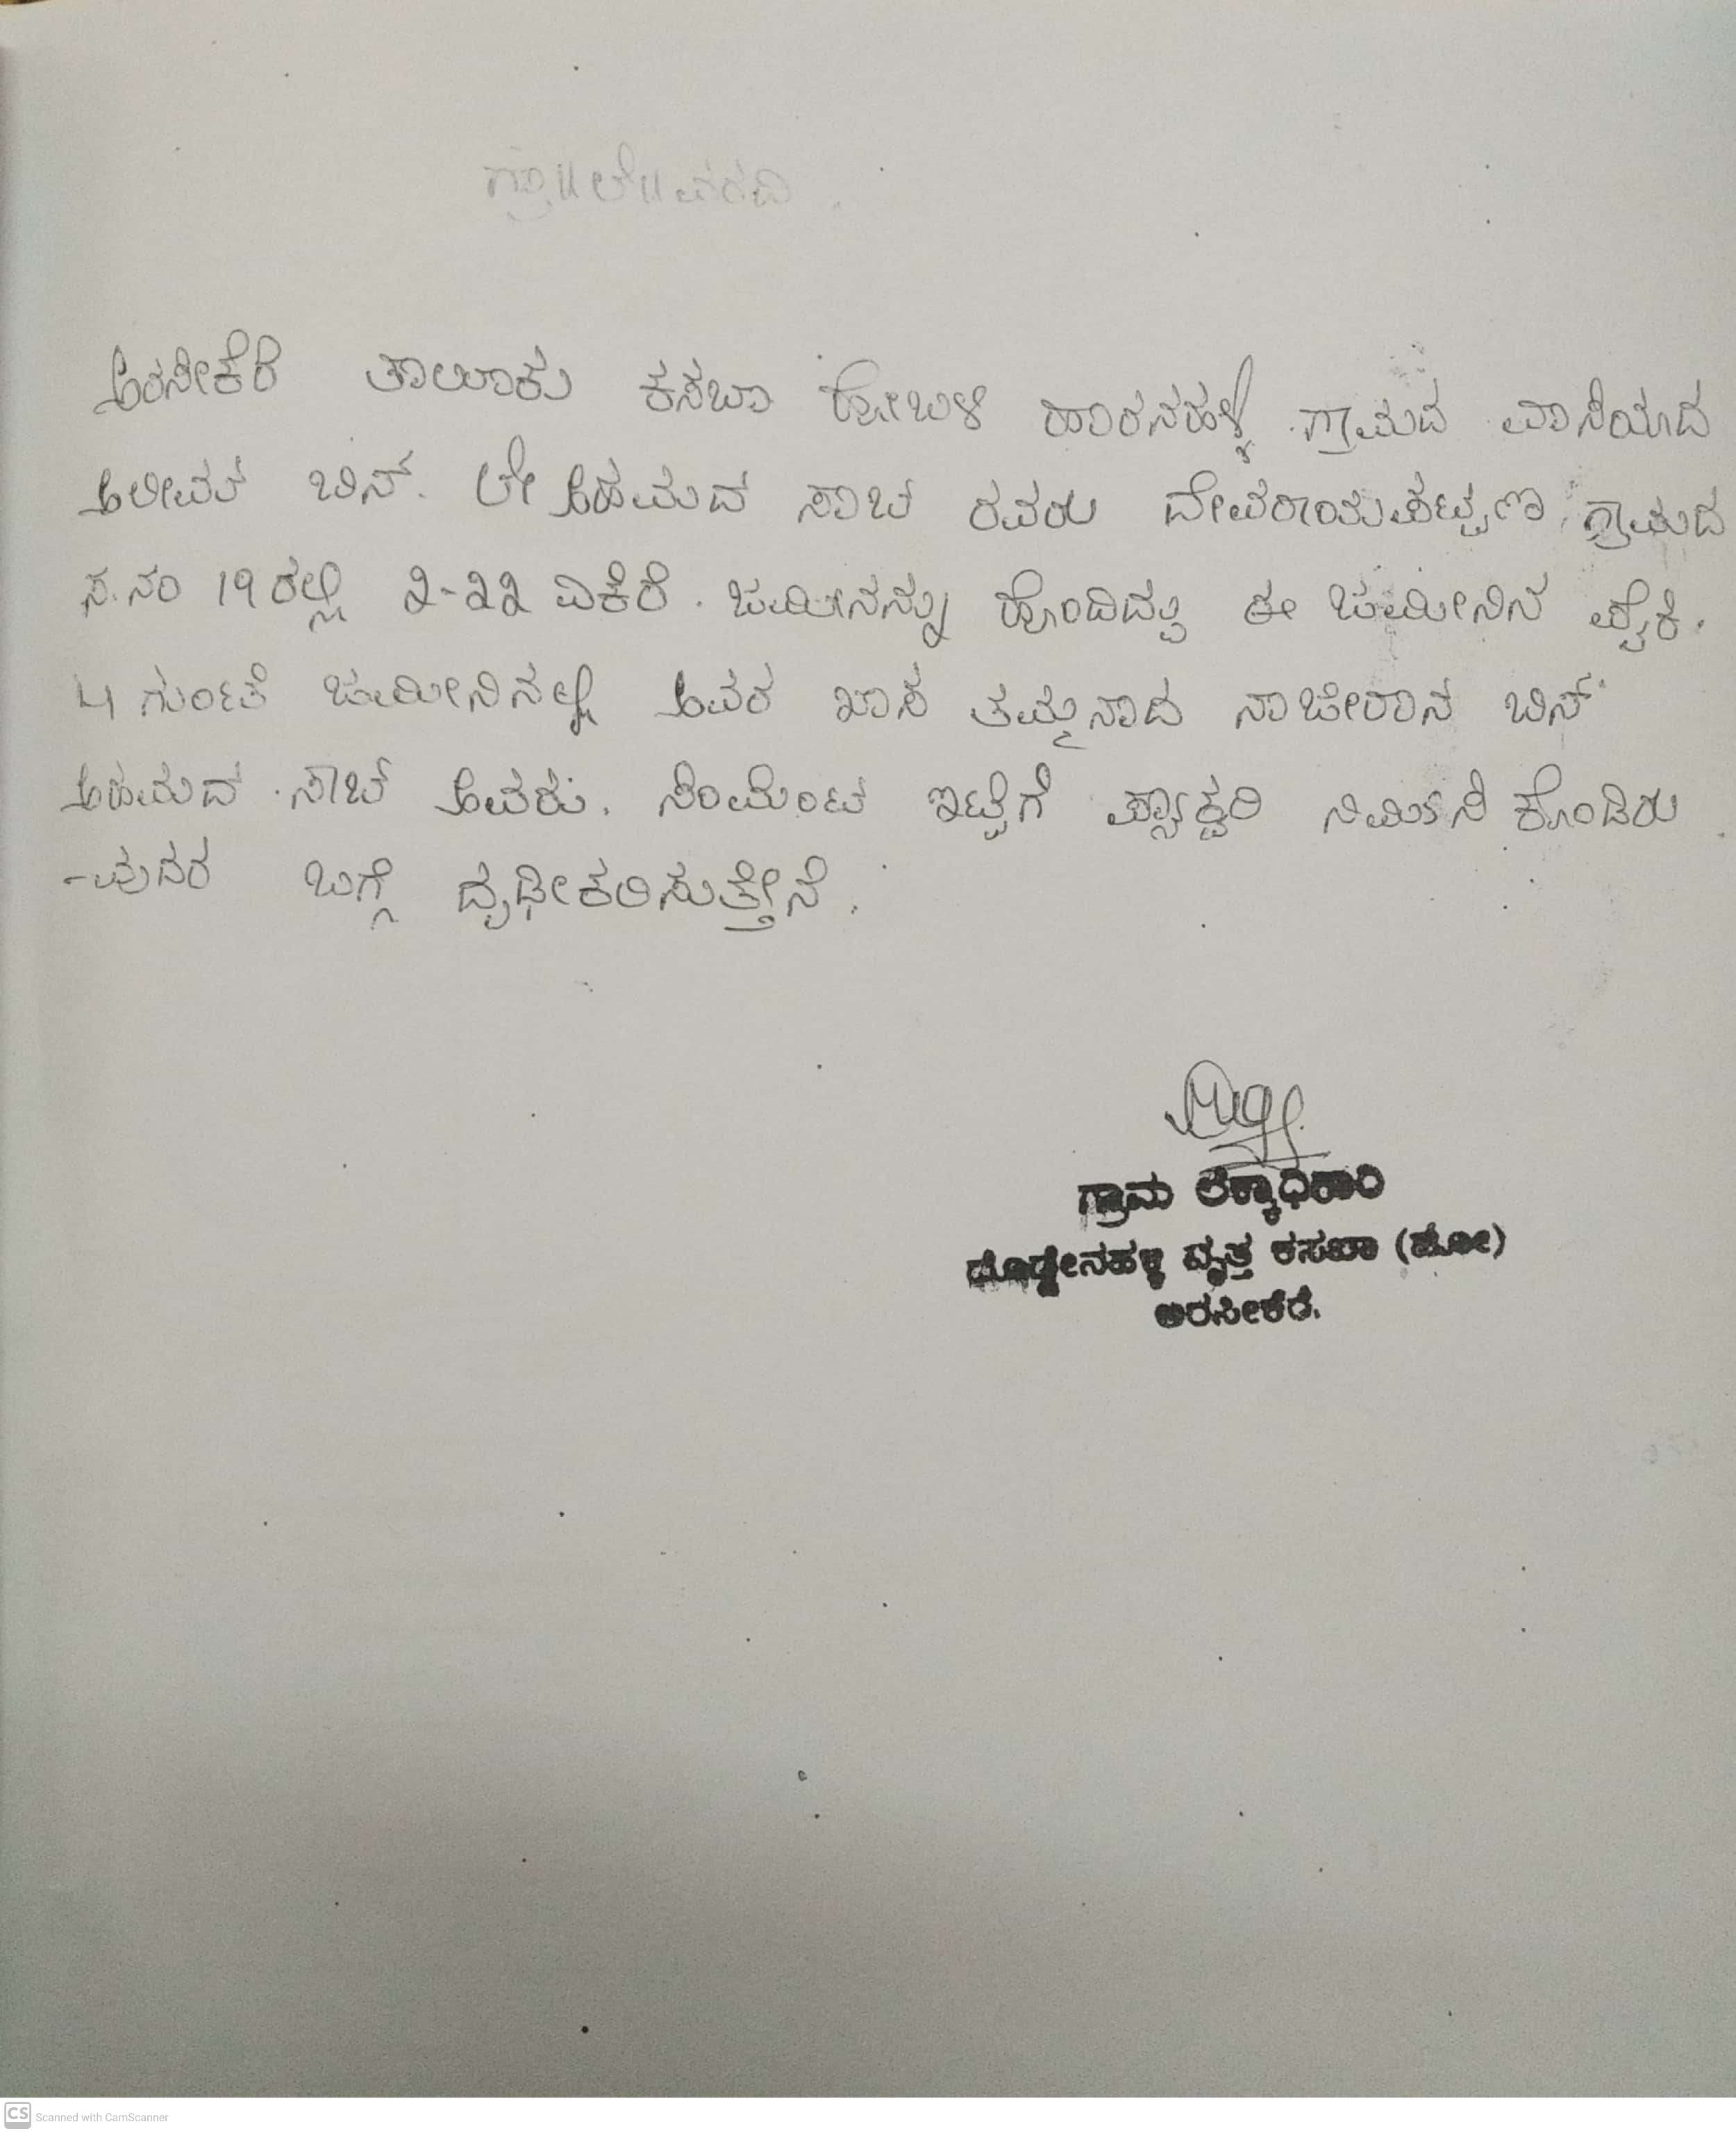 ಗ್ರಾ||ಲೆ||ವರದಿ.
ಅರಸೀಕೆರೆ ತಾಲೂಕು ಕಸಬಾ ಹೋಬಳಿ ಹಾರನಹಳ್ಳಿ ಗ್ರಾಮದ ವಾಸಿಯಾದ
ಬಿನ್. ಲೇ ಅಹಮದ್ ಸಾಬ್ ರವರು ದೇವರಾಯಪಟ್ಟಣ ಗ್ರಾಮದ
ಸ.ನಂ 19 ರಲ್ಲಿ 2-22 ಎಕೆರೆ. ಜಮೀನನ್ನು ಹೊಂದಿದ್ದು ಈ ಜಮೀನಿನ ಪೈಕಿ.
4 ಗುಂಟೆ ಜಮೀನಿನಲ್ಲಿ ಅವರ ಖಾಸ ತಮ್ಮನಾದ ಬಿನ್
ಅಹಮದ್ ಸಾಬ್ ಅವರು. ಸಿಂಮೆಂಟ ಇಟ್ಟಿಗೆ ಪ್ಯಾಕ್ಟರಿ ನಿರ್ಮಿಸಿ ಕೊಂಡಿರು
-ವುದರ ಬಗ್ಗೆ ದೃಢೀಕರಿಸುತ್ತೇನೆ.
ಗ್ರಾಮ ಲೆಕ್ಕಾಧಿಕಾರಿ
ದೊಡ್ಡೇನಹಳ್ಳಿ ವೃತ್ತ ಕಸಬಾ (ಹೋ)
ಅರಸೀಕೆರೆ.
CS Scanned with CamScanner